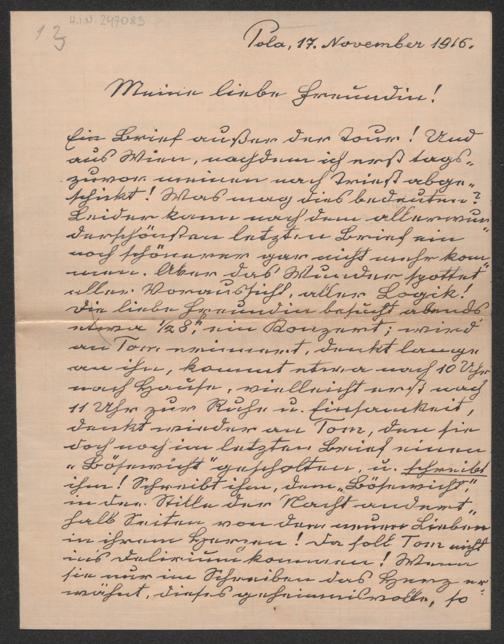 13
H.I.N 249083
Pola, 17. November 1916.
Meine liebe Freundin!
Ein Brief außer der Tour! Und
aus Wien, nachdem ich erst tags-
zuvor meinen nach Triest abge-
schickt! Was mag dies bedeuten?
Leider kann nach dem allerwun-
derschönsten letzten Brief ein
noch schönerer gar nicht mehr kom-
men. Aber das Wunder spottet
aller Voraussicht, aller Logik!
Die liebe Freundin besucht abends
etwa ½8h, ein Konzert; wird
an Tom erinnert, denkt lange
an ihn, kommt etwa nach 10 Uhr
nach Hause, vielleicht erst nach
11 Uhr zur Ruhe u. Einsamkeit,
denkt wieder an Tom, den sie
doch noch im letzten Brief einen
„Bösewicht" gescholten, u. schreibt
ihm! Schreibt ihm, dem „Bösewicht",
in der Stille der Nacht andert-
halb Seiten von dem neuen Lieben
in ihrem Herzen! Da soll Tom nicht
in's Delirium kommen! Wenn
sie nur im Schreiben das Herz er-
wähnt, dieses geheimnisvolle, so